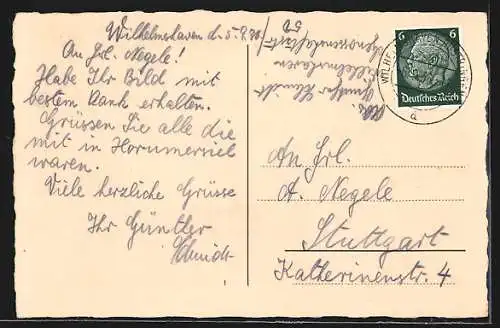 Wilhelmshaven d. 5.8.38
An Frl. Negele!
Habe Ihr Bild mit
bestem Dank erhalten.
Grüssen Sie alle die
mit in Horumersiel
waren.
Viele herzliche Grüsse
Ihr Günther
Schmidt
Günther Schmidt
Wilhelmshaven
6 6
Deutsches Reich
An Frl.
A. Negele
Stuttgart
Katherinenstr. 4